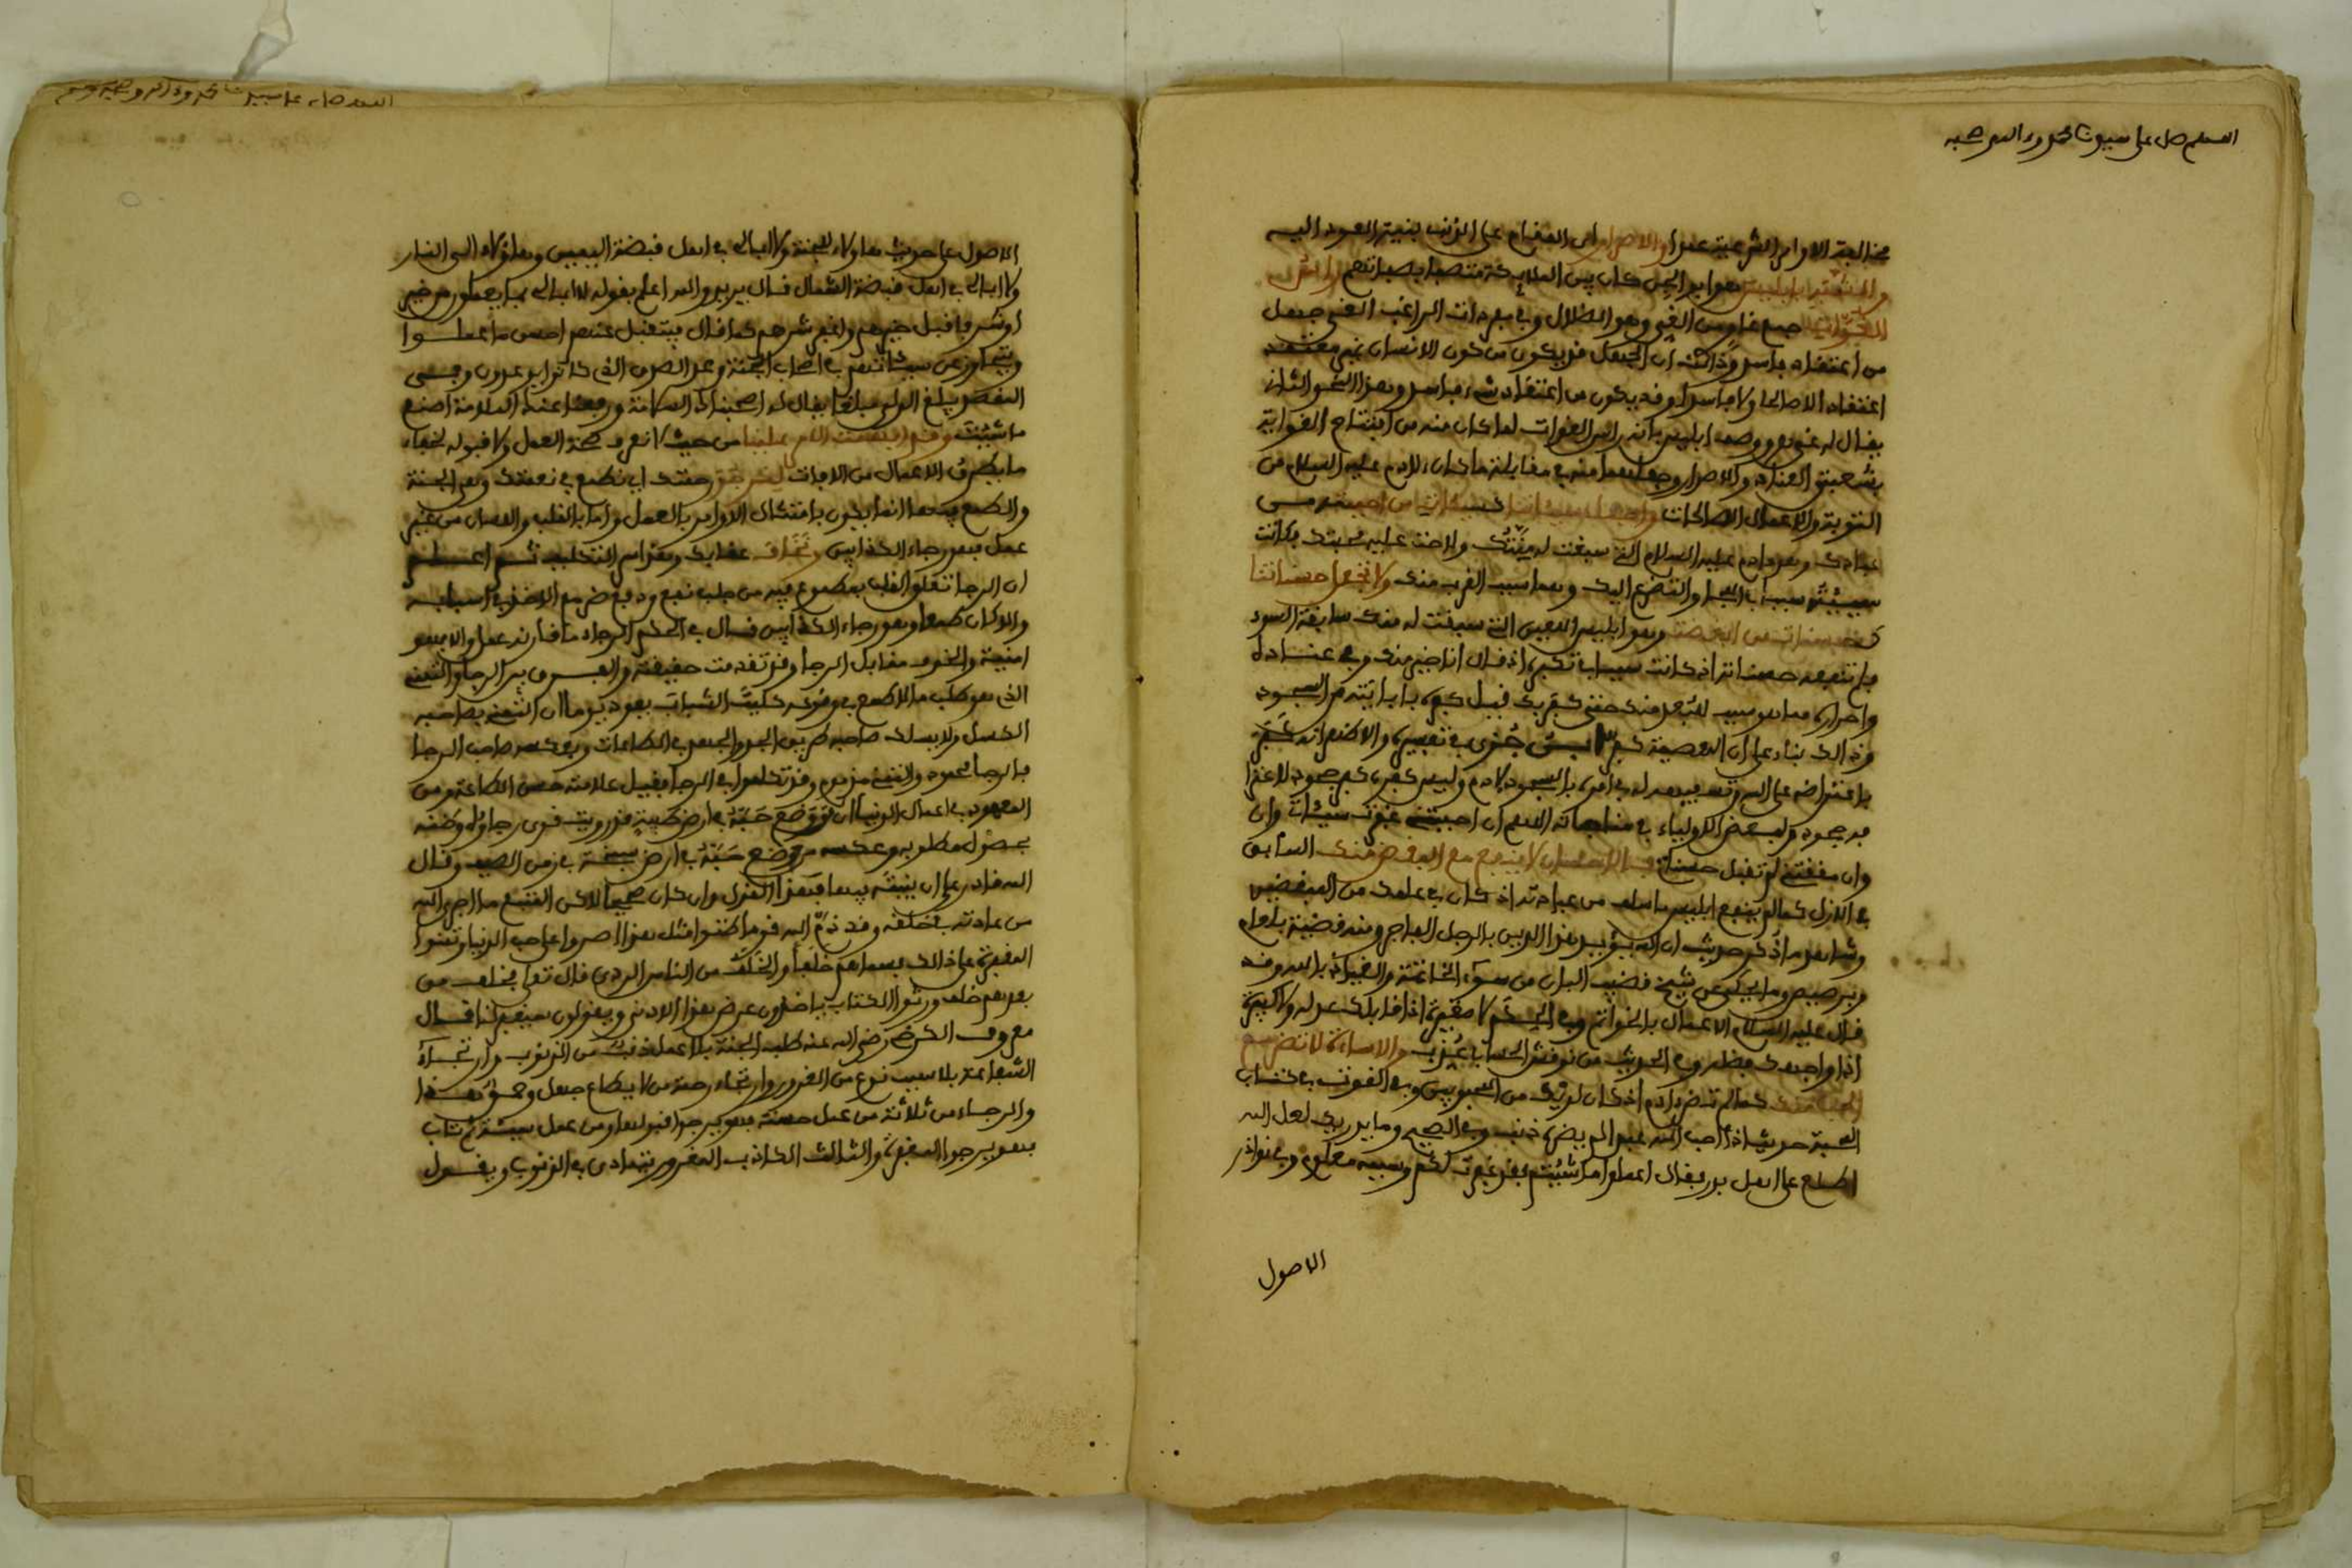 اللهم صل على سيدنا محمد وءاله وصحبه
مخالفة الاوامر الشرعية عمدا والاصرار اي المقام على الذنب بنية العود اليه
والتشبه بابليس هو ابو الجن كان بين الملايكة متصفا بصفاتهم راس
الغواة جمع غاو من الغي وهو الضلال وفي مفردات الراغب الغي جهل
من اعتقاد فاسد وذالك ان الجهل قد يكون من كون الانسان غير معتقد
اعتقادا لا صالحا ولا فاسدا وقد يكون من اعتقاد شيء فاسد وهذا النحو الثاني
يقال له غي ووصف ابليس بانه راس الغوات لما كان منه من افتتاح الغواية
بشعبتي العناد والاصرار وجعلهما منه في مقابلة ما كان لادم عليه السلام من
التوبة والاعمال الصالحات واجعل سيئاتنا سيئات من احببته من
عبادك وهو ءادم عليه السلام الذي سبقت له منتك ولاحت عليه محبتك فكانت
سيئته سببا في البكاء والتضرع اليك وهما سبب القرب منك ولا تجعل حسناتنا
كحسنات من ابغضته وهو ابليس اللعين الذي سبقت له منك سابقة السوء
فلم تنفعه حسناته اذ كانت سببا في تكبره اذ قال انا خير منه وفي عناده
واصراره مما هو سبب للبعد منك حتى كفر بك قيل كفره بابايته من السجود
وذالك بناء على ان المعصية كفر ابن جزي في تفسيره والاظهر انه كفر
باعتراضه على الله وتسفيهه له في امره بالسجود لادم وليس كفره كفر جحود لاعترا
فه وجوده ولبعض الاولياء في مناجاته اللهم ان احببتني غفرت سيئات وان
وان مقتني لم تقبل حسناتي فالاحسان لا ينفع مع البغض منك السابق
في الازل كما لم ينفع ابليس ما سلف من عبادته اذ كان في علمك من المبغضين
وشاهد ما ذكر حديث ان الله يؤيد هذا الدين بالرجل الفاجر ومنه قضية بلعام
وبرصيص وما يحكى عن شيخ قضيب البان من سوء الخاتمة والعياذ بالله وقد
قال عليه السلام الاعمال بالخواتم وفي الحكم لا صغيرة اذا قابلك عدله ولا كبيرة
اذا واجهك فضله وفي الحديث من نوقش الحساب عذب والاساءة لا تضر مع
الحب منك كما لم تضر ءادم اذ كان لديك من المحبوبين وفي القوت في كتاب
المحبة حديث اذا احب الله عبدا لم يضره ذنب وفي الصحيح وما يدريك لعل الله
اطلع على اهل بدر فقال اعملوا ما شئتم فقد غفرت لكم وسببه معلوم وفي نوادر
الاصول
اللهم صل على سيدنا محمد وءاله وصحبه وسلم
الاصول على حديث هاولاء للجنة ولا ابالي في اهل قبضة اليمين وهاؤلاء الى النار
ولا ابالي في اهل قبضة الشمال قال يريد والله اعلم بقوله لا ابالي بما يعملون من خير
او شر فاقبل خيرهم واغفر شرهم كما قال يتقبل عنهم احسن ما عملوا
ويتجاوز عن سيئاتهم في اصحاب الجنة وعد الصدق الذي كانوا يوعدون وفي
القصر يبلغ الولي مبلغا يقال له اصحبناك السلامة ورفعنا عنك الملامة اصنع
ما شئت وقد ابهمت الامر علينا من حيث لا نعرف صحة العمل ولا قبوله لخفاء
ما يطرق الاعمال من الافات لنرجو رحمتك اي نطمع في نعمتك وهي الجنة
والطمع فيها انما يكون بامتثال الاوامر بالعمل واما بالقلب واللسان من غير
عمل فهو رجاء الكذابين ونخاف عقابك وهو اسم التحليه ثم اعلم
ان الرجا تعلق القلب بمطموع فيه من جلب نفع ودفع ضر مع الاخذ في اسبابه
والا كان طمعا وهو رجاء الكذابين قال في الحكم الرجاء ما قارنه عمل والا فهو
امنية والخوف مقابل الرجا وقد تقدمت حقيقته والفرق بين الرجا والتمني
الذي هو طلب ما لا طمع في وقوعه كليت الشباب يعود يوما ان التمني يصاحبه
الكسل ولا يسلك صاحبه طريق الجد والجهد في الطاعات وبعكسه صاحب الرجا
فالرجا محمود والتمني مذموم وقد تكلموا في الرجا فقيل علامته حسن الطاعة ومن
المعهود في اعمال الدنيا ان من وضع حبة في ارض طيبة قد رويت قوي رجاؤه وظنه
بحصول مطلوبه وعكسه من وضع حبة في ارض سبخة في زمن الصيف وقال
الله قادر على ان ينبته فيها فهذا القول وان كان صحيحا لاكن المتبع ما اجرى الله
من عادته في خلقه وقد ذم الله قوما ظنوا مثل هذا اصروا على حب الدنيا وتمنوا
المغفرة على ذالك فسماهم خلفا والخلف من الناس الردي قال تعالى فخلف من
بعدهم خلف ورثوا الكتاب ياخذون عرض هذا الادنى ويقولون سيغفر لنا قال
معروف الكرخي رضي الله عنه طلب الجنة بلا عمل ذنب من الذنوب وارتجاء
الشفاعة بلا سبب نوع من الغرور وارتجاء رحمة من لا يطاع جهل وحمق هذا
والرجاء من ثلاثة من عمل حسنة فهو يرجوا قبولها ومن عمل سيئة ثم تاب
فهو يرجوا المغفرة والثالث الكاذب المغرور يتمادى في الذنوب ويقول